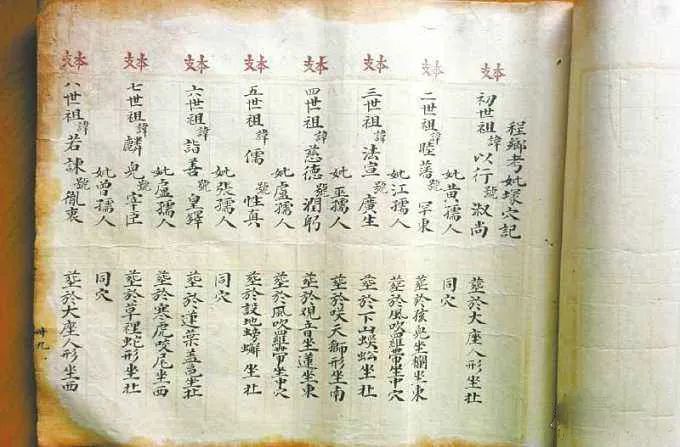 程鄉考妣墳穴記
本支
初世祖諱以行號淑尚 葬於大座人形坐北
妣黃孺人 同穴
本支
二世祖諱睦藩號罕東 葬於坐棚坐東
妣江孺人 葬於風吹羅帶坐申穴
本支
三世祖諱法宣號廣生 葬於下山蜈蚣坐北
妣巫孺人 葬於咲天獅形坐南
本支
四世祖諱慈德號潤躬 葬於觀音坐蓮坐東
妣盧孺人 葬於風吹羅帶坐申穴
本支
五世祖諱儒號性真 葬於設地螃蠏坐北
妣張孺人 同穴
本支
六世祖諱詣善號皇鐸 葬於蓮葉蓋坐北
妣盧孺人 葬於寒虎咬尼坐西
本支
七世祖諱麟皃號宰臣 葬於草裡蛇形坐北
妣曾孺人 同穴
本支
八世祖諱若諫號胤衷 葬於大座人形坐西
卅九